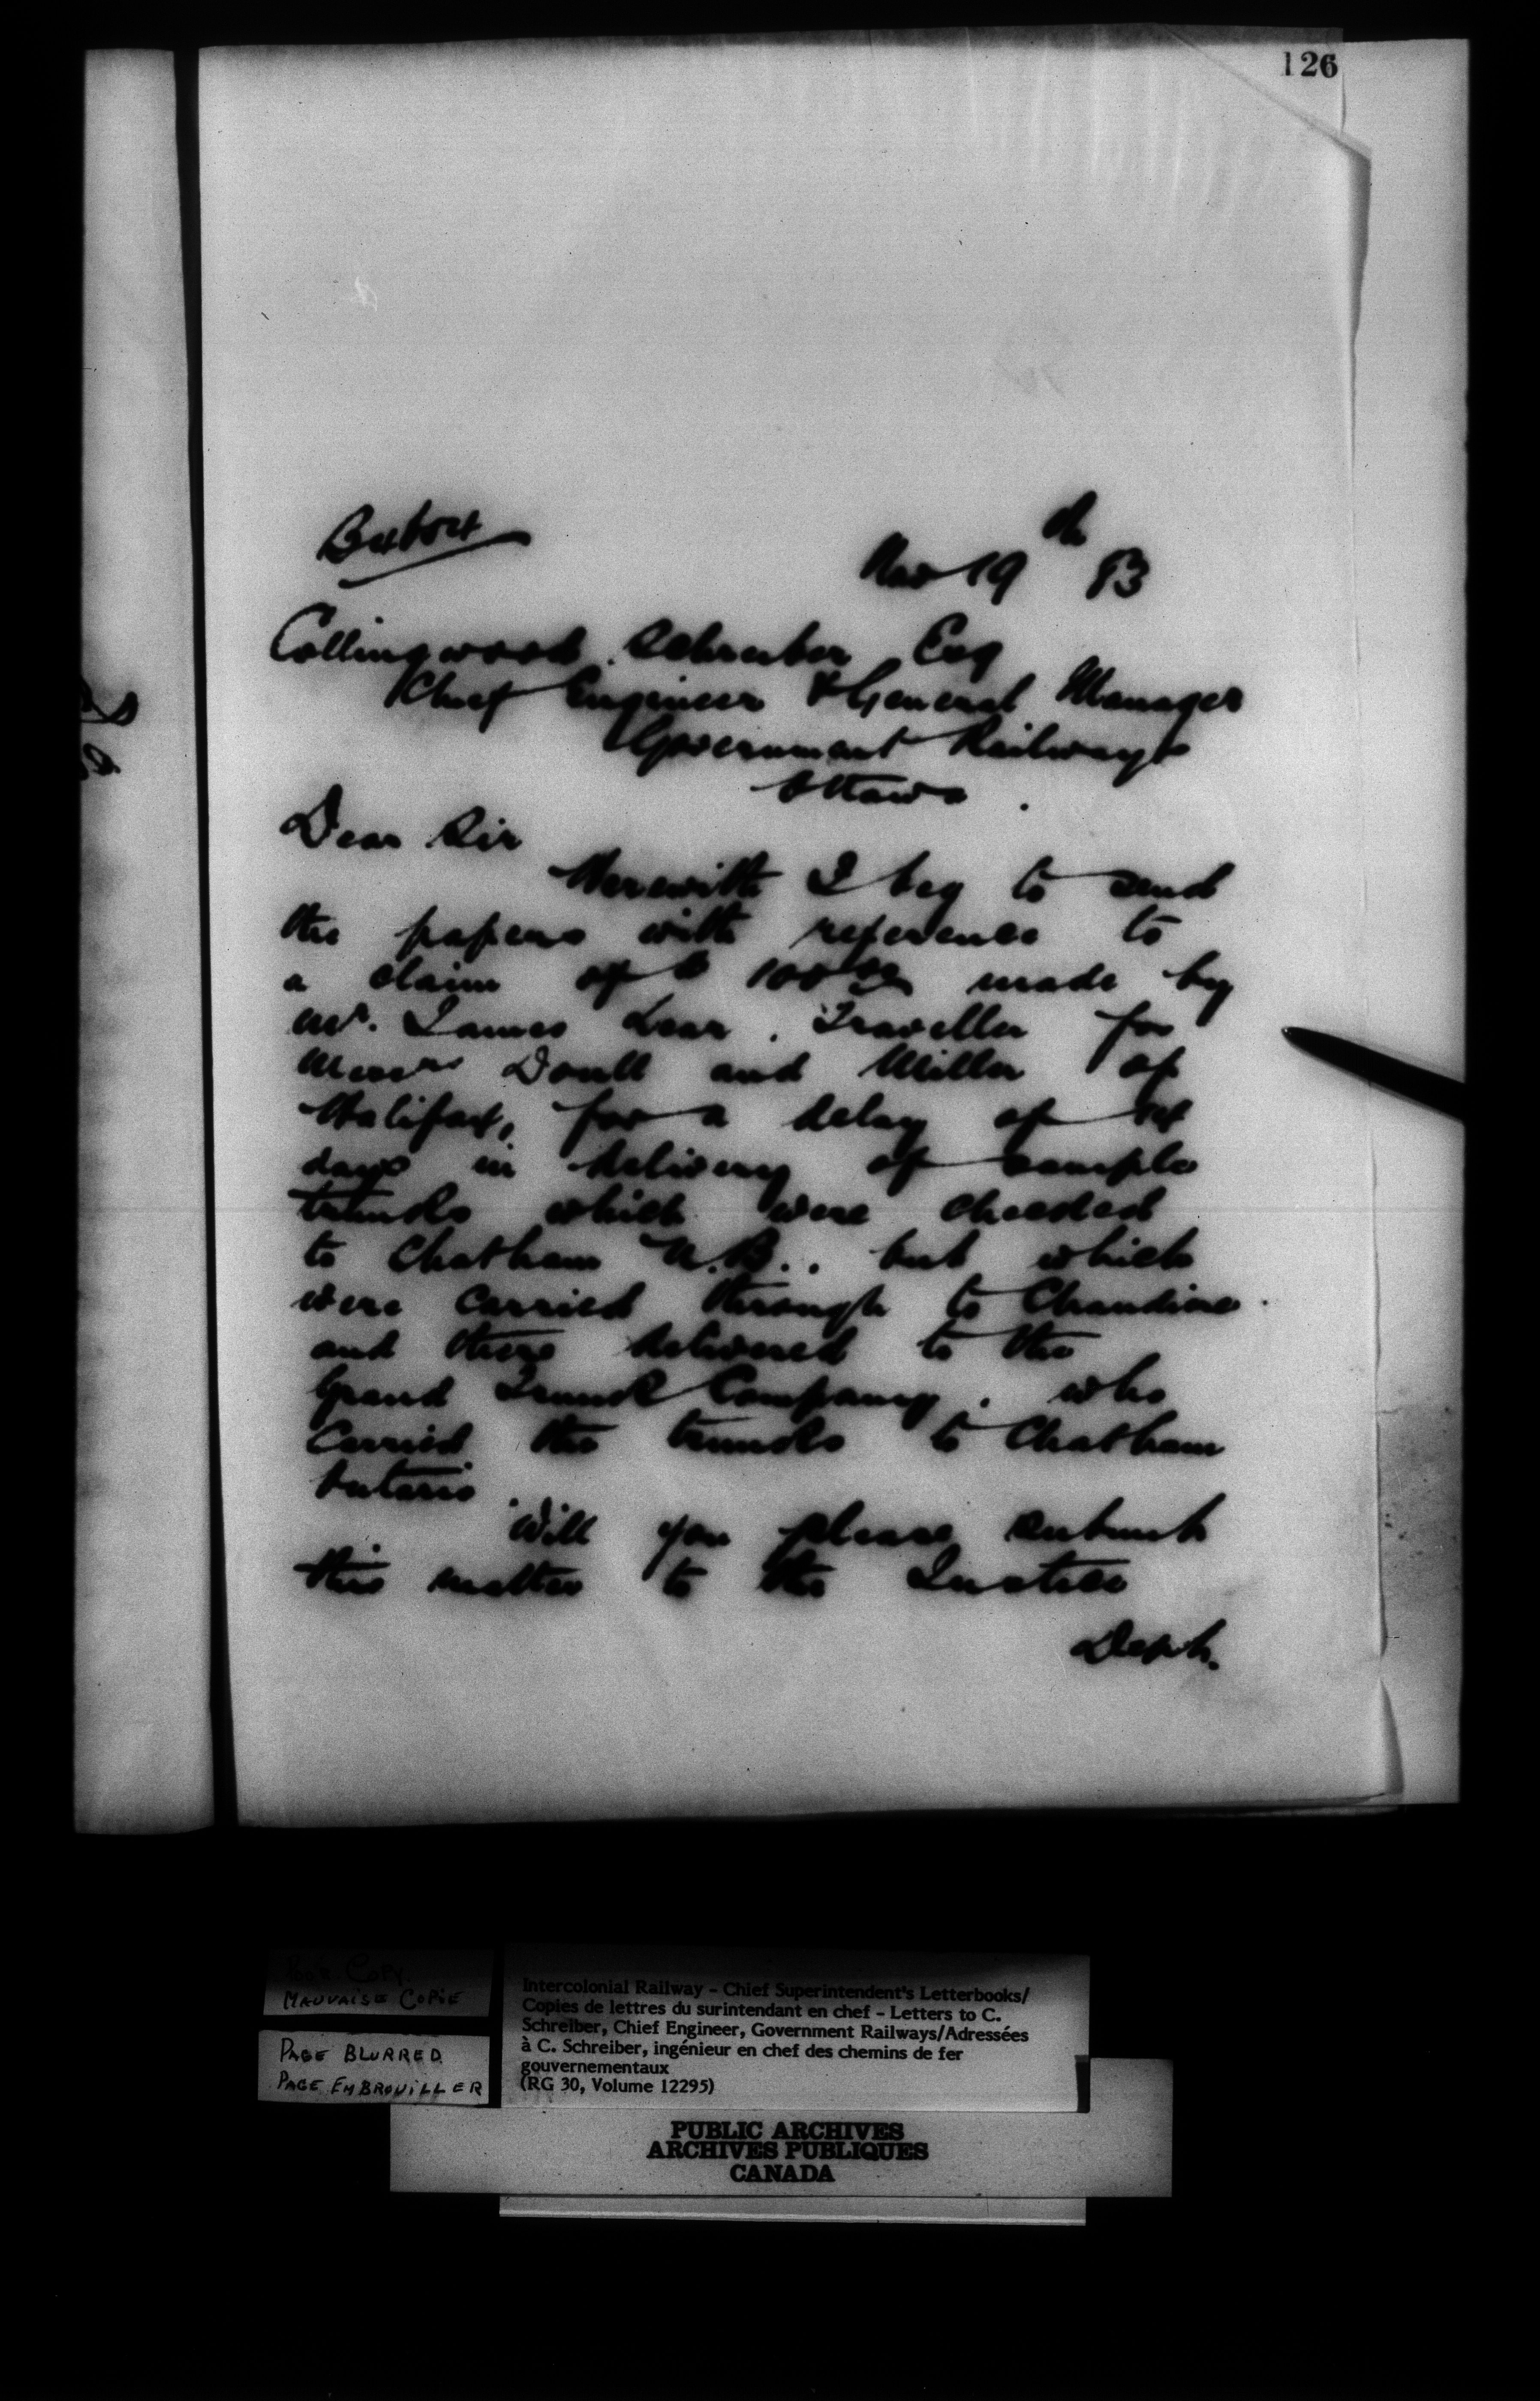 126
Nov 19th 83
Collingwood Schreiber Esq
Chief Engineer & General Manager
Government Railways
Ottawa.
Dear Sir
Herewith I beg to send
the papers with reference to
a claim of $100 made by
Mr. James Dear, Traveller for
Messrs Doull and Miller of
Halifax, for a delay of six
days in delivery of sample
trunks which were checked
to Chatham N.B., but which
were carried through to Chaudiere.
and there delivered to the
Grand Trunk Company, who
Carried the trunks to Chatham
Ontario.
Will you please submit
this matter to the Justice
Dept.
POOR COPY.
MAUVAISE COPIE
PAGE BLURRED
PAGE EMBROUILLER
Intercolonial Railway – Chief Superintendent's Letterbooks/
Copies de lettres du surintendant en chef – Letters to C.
Schreiber, Chief Engineer, Government Railways/Adressées
à C. Schreiber, ingénieur en chef des chemins de fer
gouvernementaux
(RG 30, Volume 12295)
PUBLIC ARCHIVES
ARCHIVES PUBLIQUES
CANADA